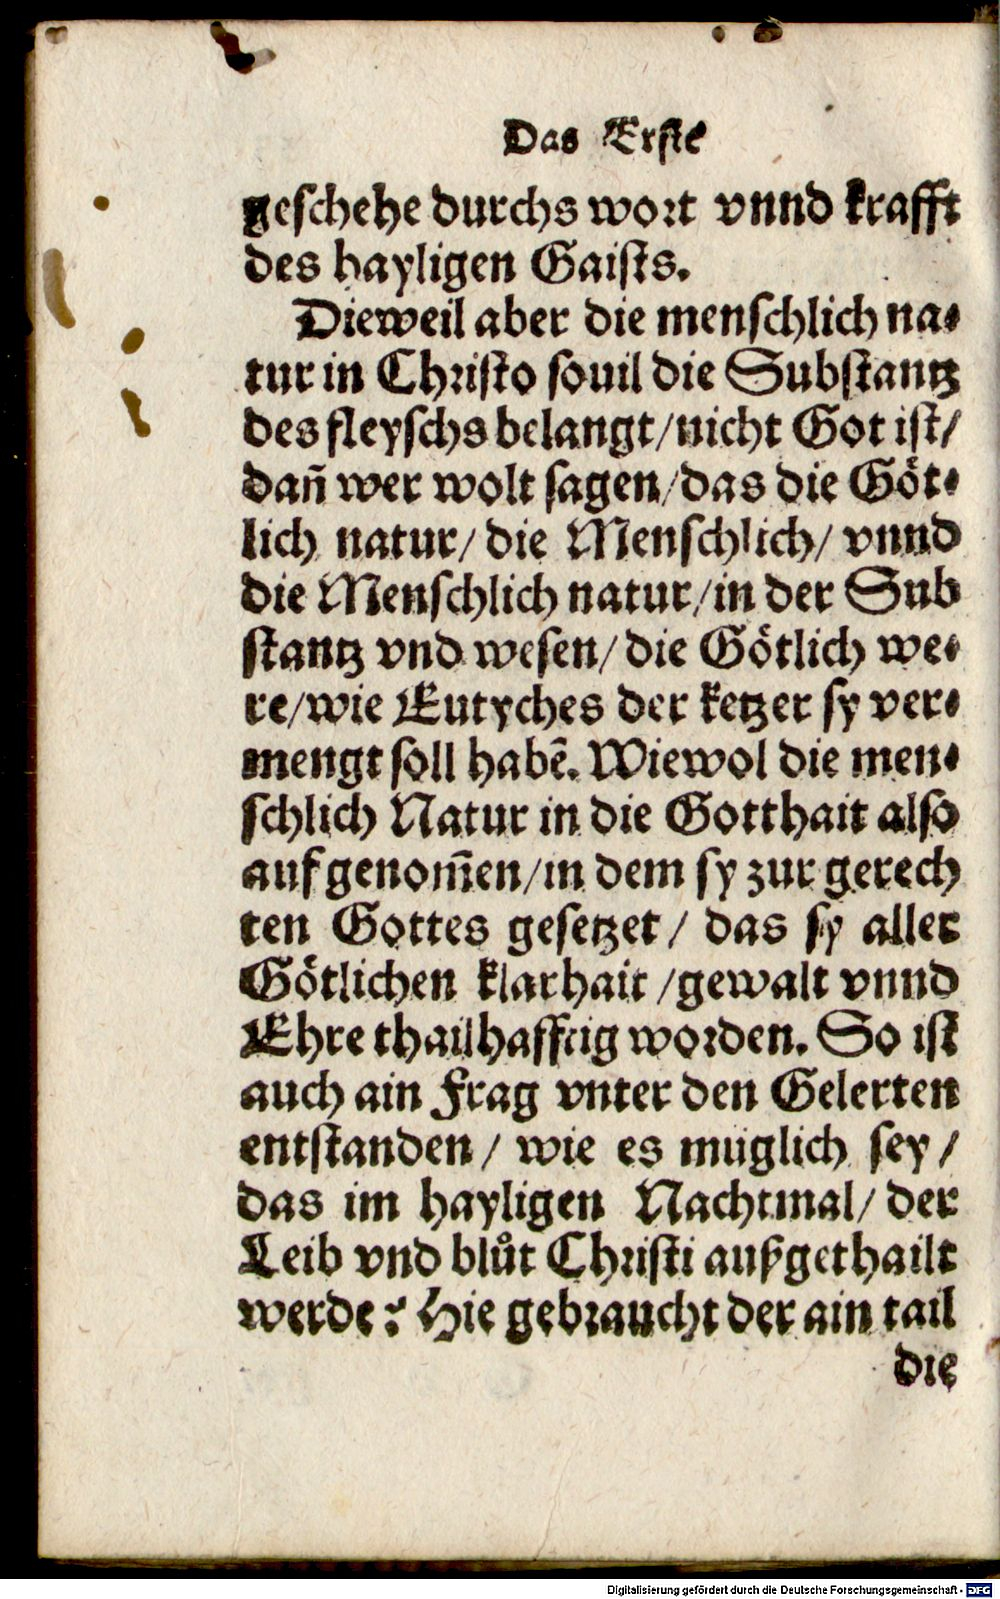 Das Erste
geschehe durchs wort vnnd krafft
des hayligen Gaists.
Dieweil aber die menschlich na-
tur in Christo souil die Substantz
des fleyschs belangt/nicht Got ist/
dañ wer wolt sagen/das die Göt-
lich natur/ die Menschlich/ vnnd
die Menschlich natur/in der Sub
stantz vnd wesen/ die Götlich we-
re/wie Eutyches der ketzer sy ver-
mengt soll habẽ. Wiewol die men-
schlich Natur in die Gotthait also
auf genom̃en/in dem sy zur gerech
ten Gottes gesetzet/ das sy aller
Götlichen klarhait /gewalt vnnd
Ehre thailhafftig worden. So ist
auch ain Frag vnter den Gelerten
entstanden/ wie es müglich sey/
das im hayligen Nachtmal/ der
Leib vnd blůt Christi außgethailt
werde? Hie gebraucht der ain tail
die
Digitalisierung gefördert durch die Deutsche Forschungsgemeinschaft - DFG